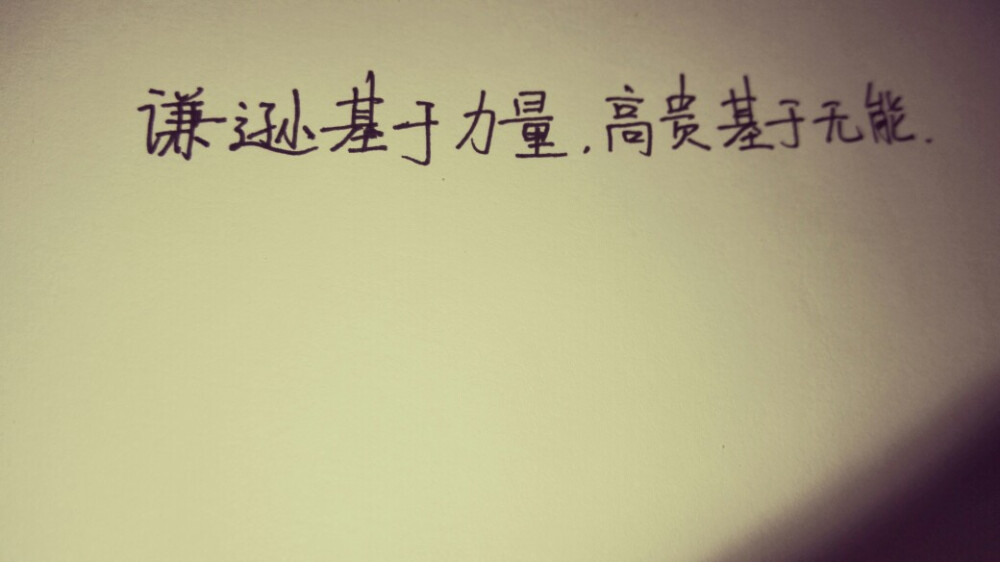 谦逊基于力量,高贵基于无能.